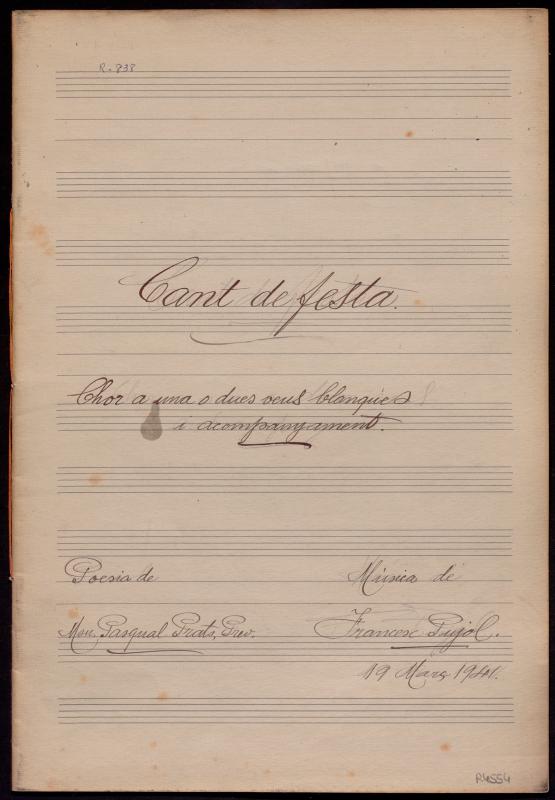 R. 838
Cant de festa.
Chor a una o dues veus blanques
i acompanyament.
Poesia de Música de
Mn. Pasqual Prats, Prev. Francesc Pujol.
19 Març
R.4554